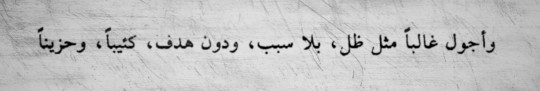 وأجول غالباً مثل ظل، بلا سبب، ودون هدف، كئيباً، وحزيناً